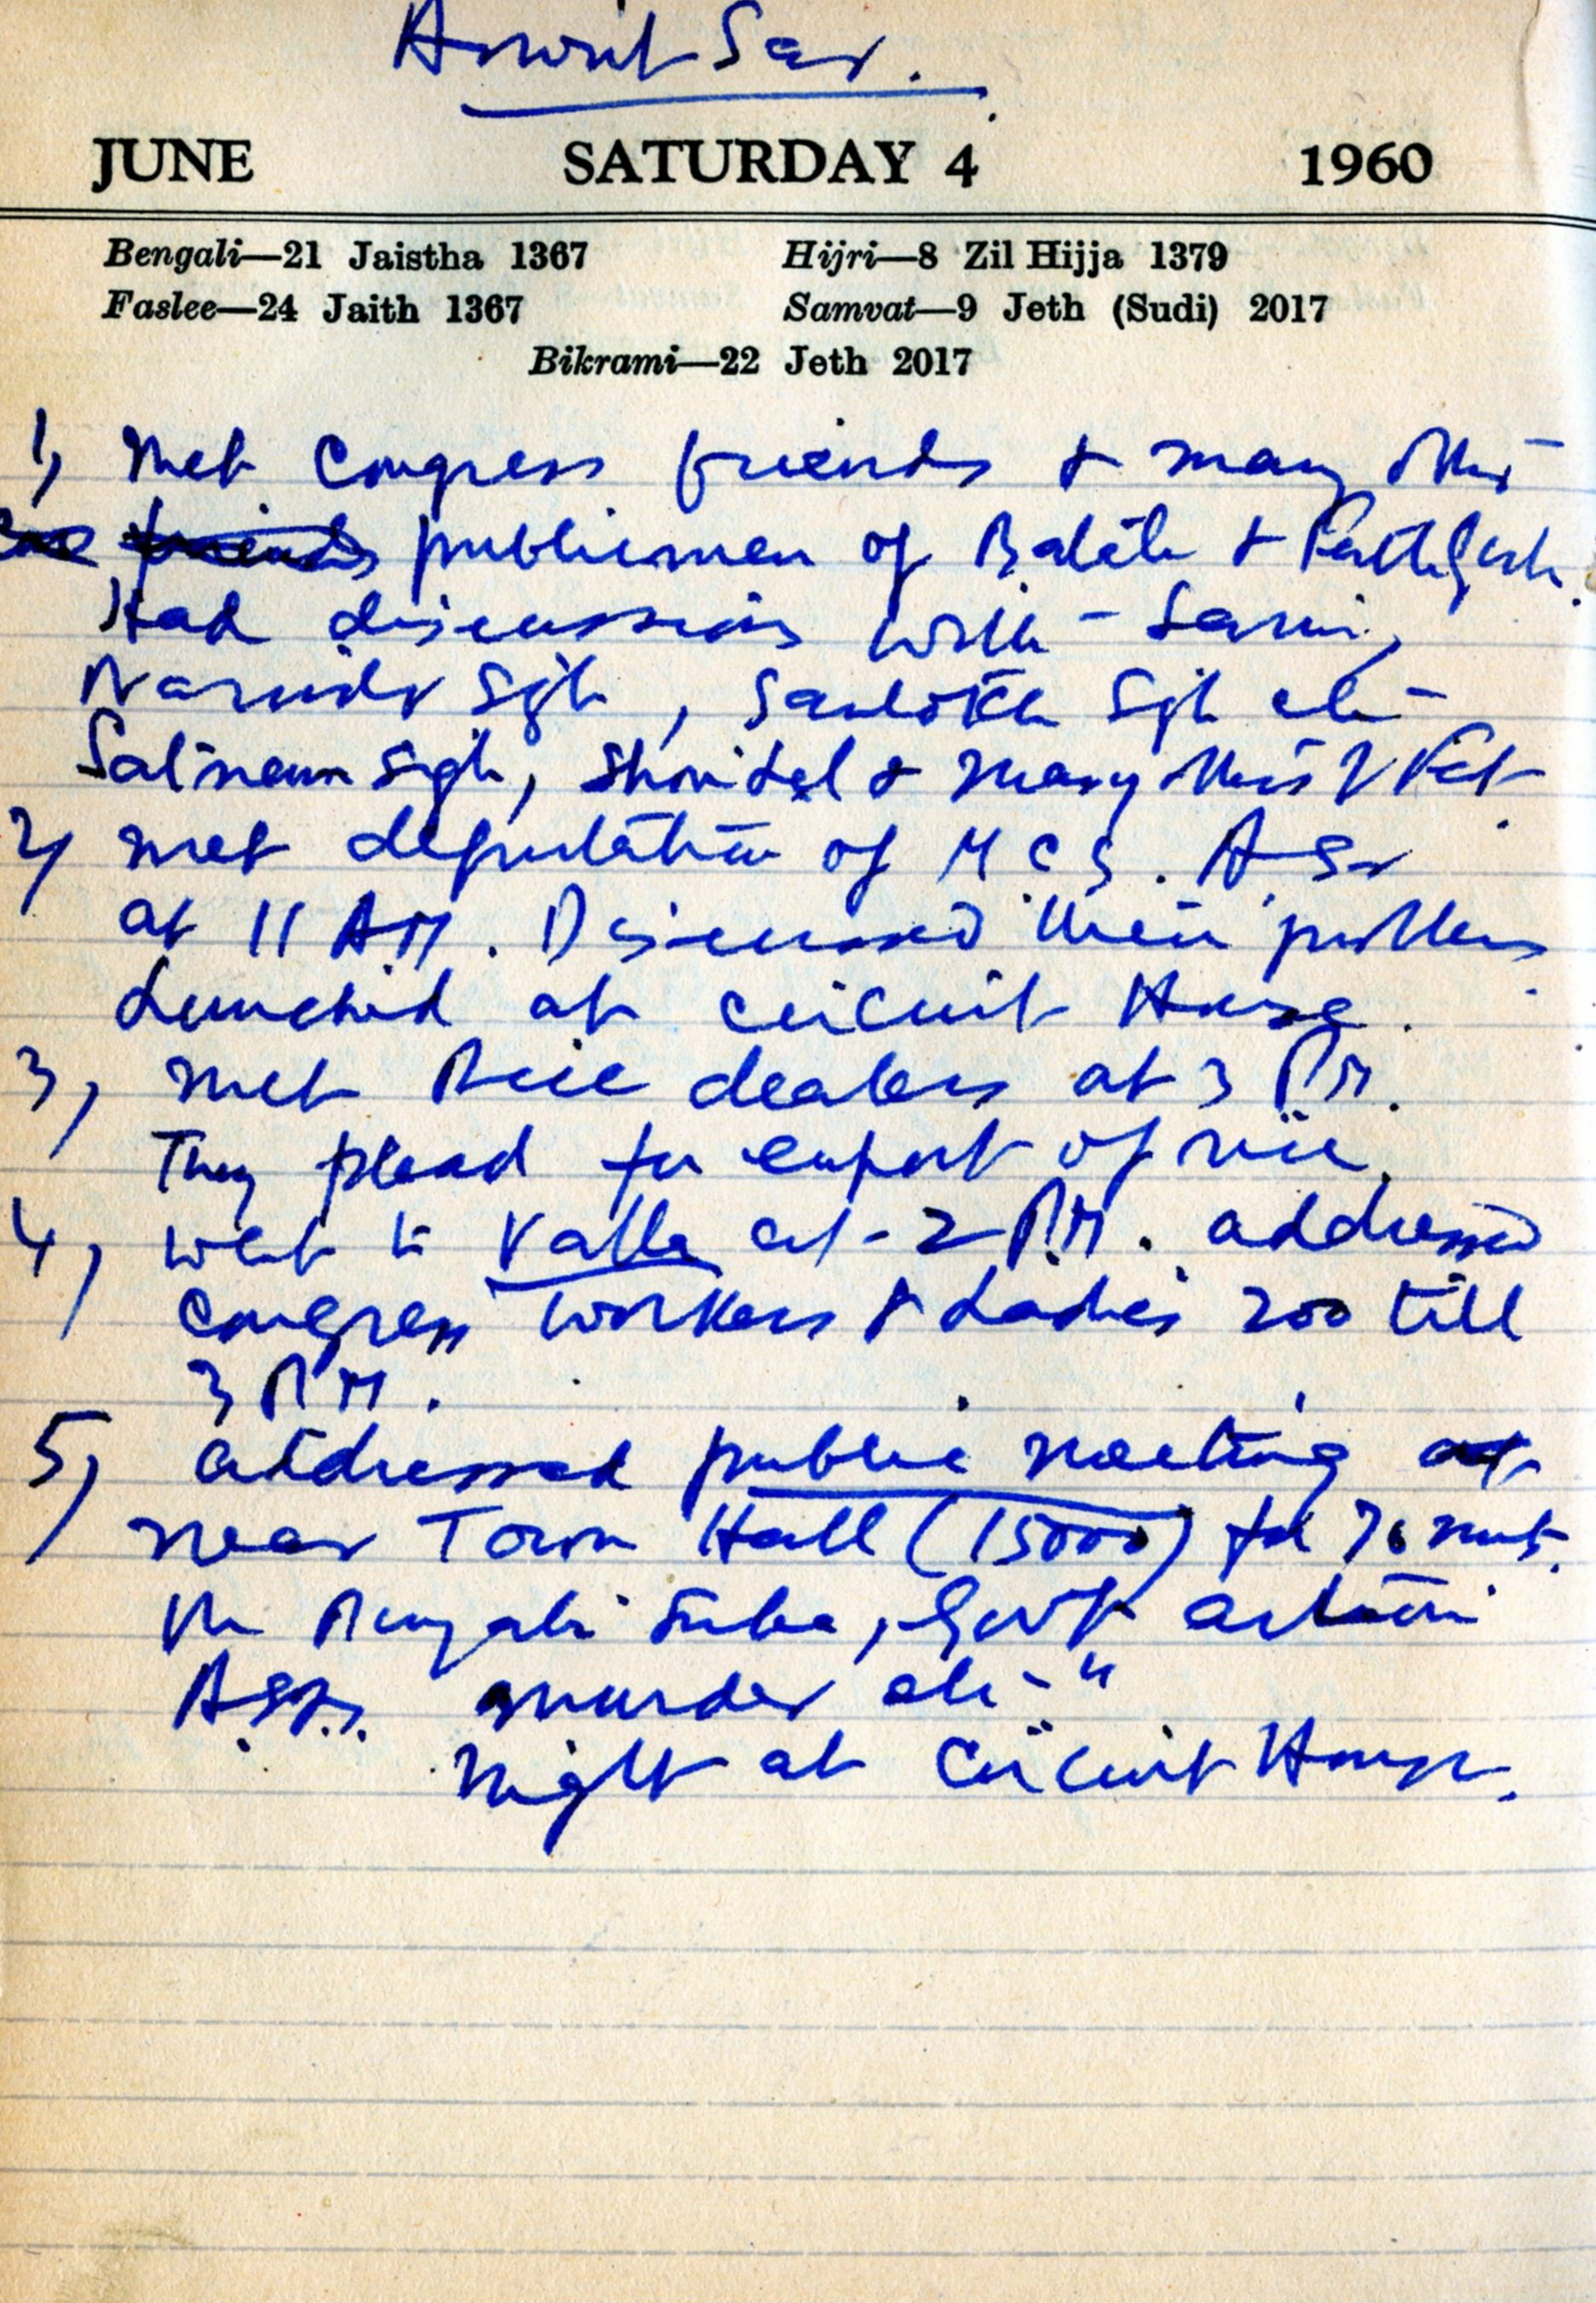 Amrit Sar.
JUNE SATURDAY 4 1960
Bengali—21 Jaistha 1367 Hijri—8 Zil Hijja 1379
Faslee—24 Jaith 1367 Samvat—9 Jeth (Sudi) 2017
Bikrami—22 Jeth 2017
1) Met Congress friends & many other
friends publicmen of Batala &
Had discussions with - Saini,
Narinder Sgh, Santokh Sgh etc -
Satnam Sigh, & many others
2) met deputation of M C S. ASr
at 11 A.M. Discussed their problems
Lunched at Circuit House.
3) Met Rice dealers at 3 P.M.
They plead for export of rice.
4) went to Valla at - 2 P.M. addressed
Congress workers & Ladies 200 till
3 P.M.
5) addressed public meeting at
near Town Hall (15000) for 70 mnts.
on Punjabi Suba, Govt action
ASr. murder etc - "
Night at Circuit House.